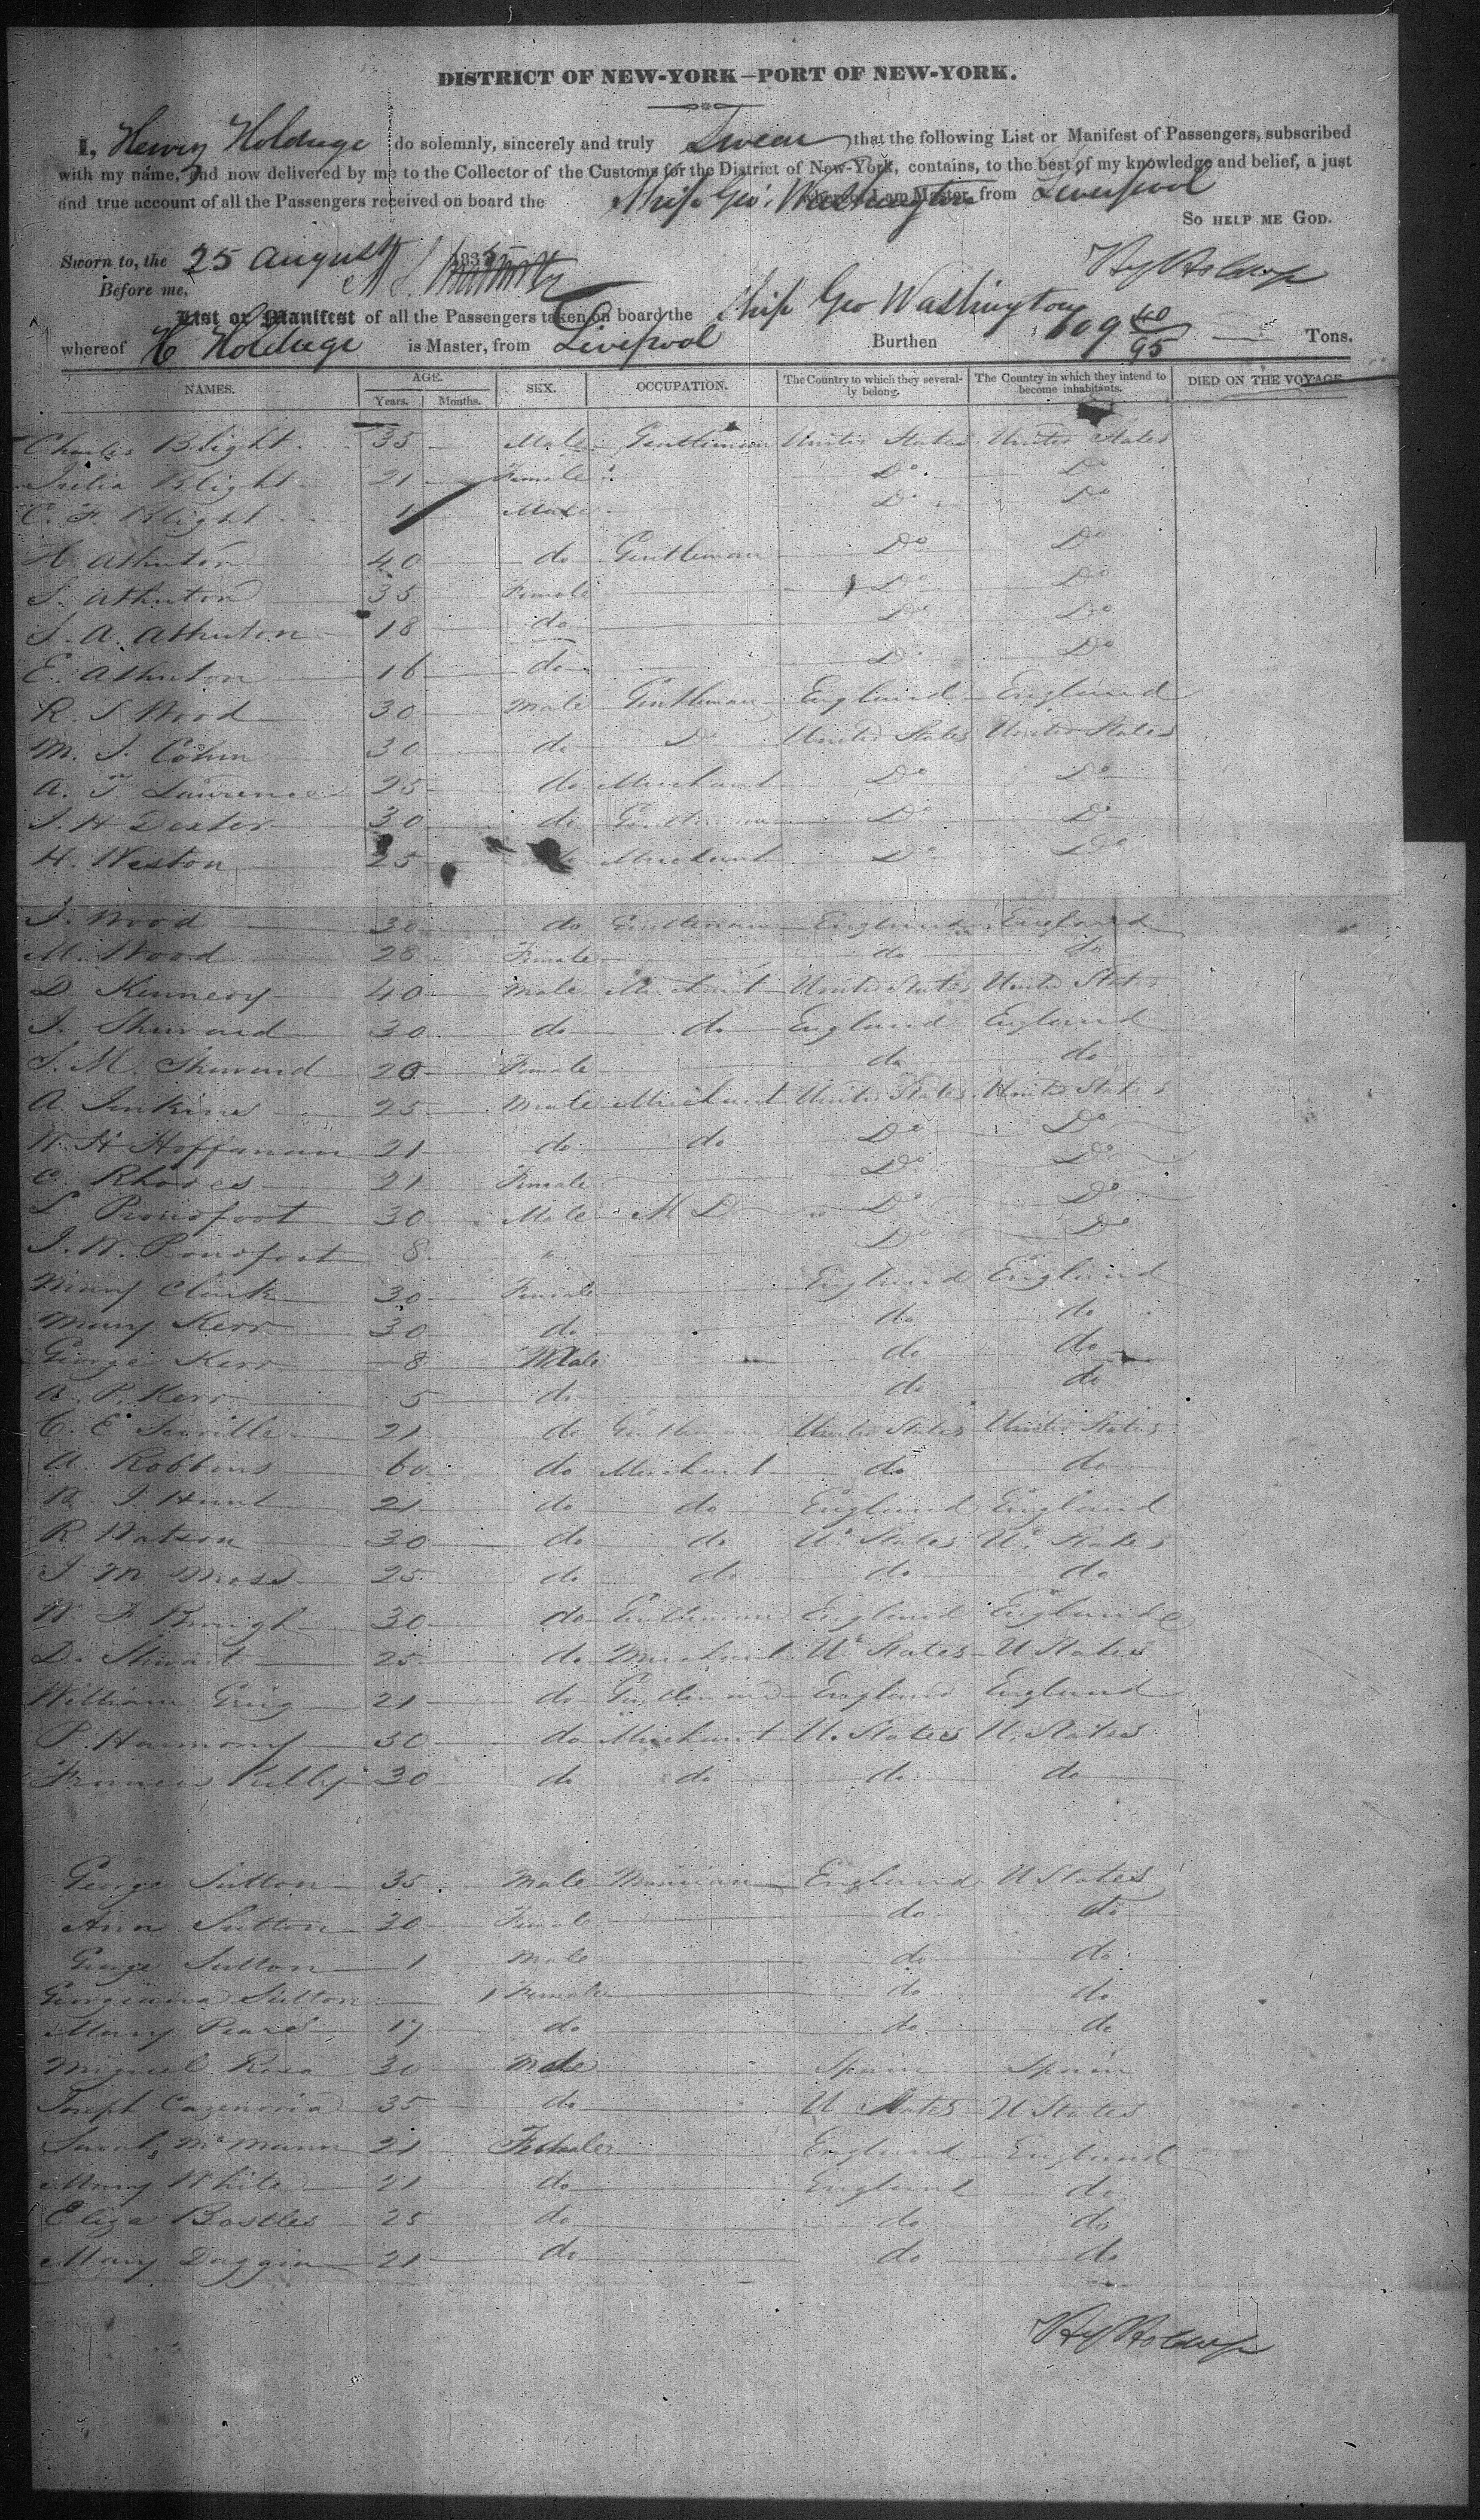 DISTRICT OF NEW-YORK—PORT OF NEW-YORK.
I, Henry Holdrege do solemnly, sincerely and truly Swear that the following List or Manifest of Passengers, subscribed
with my name, and now delivered by me to the Collector of the Customs for the District of New-York, contains, to the best of my knowledge and belief, a just
and true account of all the Passengers received on board the Ship Geo: Washington whereof I am Master, from Liverpool
SO HELP ME GOD.
Sworn to, the 25 August 183
Hy Holdrege
Before me,
List or Manifest of all the Passengers taken on board the Ship Geo Washington
whereof H Holdrege is Master, from Liverpool Burthen 609 40/95 Tons.
NAMES. AGE. Years. Months. SEX. OCCUPATION. The Country to which they severally belong. The Country in which they intend to become inhabitants. DIED ON THE VOYAGE
Charles Blight 35 Male Gentleman United States United States
Julia Blight 21 Female Do Do
C. F. Blight 1 Male Do Do
H. Atherton 40 do Gentleman Do Do
S. Atherton 35 Female Do Do
S. A. Atherton 18 do Do Do
E. Atherton 16 do Do Do
R. S Wood 30 Male Gentleman England England
M. I. Cohen 30 do Do United States United States
A. T. Lawrence 25 do Merchant Do Do
S. H Dexter 30 do Gentleman Do Do
H. Weston 25 do Merchant Do Do
J. Wood 30 do Gentleman England England
M. Wood 28 Female do do
D. Kennedy 40 Male Merchant United States United States
J. 30 do do England England
S. M. 20 Female do do
A. Jenkins 25 Male Merchant United States United States
W. H Hoffman 21 do do Do Do
C. Rhodes 21 Female Do Do
L Proudfoot 30 Male M D Do Do
J. W. Proudfoot 8 " Do Do
Mary Clark 30 Female England England
Mary Kerr 30 do do do
George Kerr 8 Male do do
A. P. Kerr 5 do do do
C. E 21 do Gentleman United States United States
A. Robbins 60 do Merchant do do
W. I Hunt 21 do do England England
R Watson 30 do do U. States U. States
J M Moss 25 do do do do
W. F Brough 30 do Gentleman England England
D. Stewart 25 do Merchant U States U States
William Greig 21 do Gentleman England England
P. Harmony 30 do Merchant U. States U. States
Francis Kelly 30 do do do do
George Sutton 35 Male England U States
Ann Sutton 30 Female do do
George Sutton 1 Male do do
Georgianna Sutton 1 Female do do
Mary 17 do do do
Miguel Rosa 30 Male Spain Spain
Joseph Cazenovia 35 do U States U States
Sarah McMann 21 Female England England
Mary White 21 do England do
Eliza Bostles 25 do do do
Mary Duggin 21 do do do
Hy Holdrege